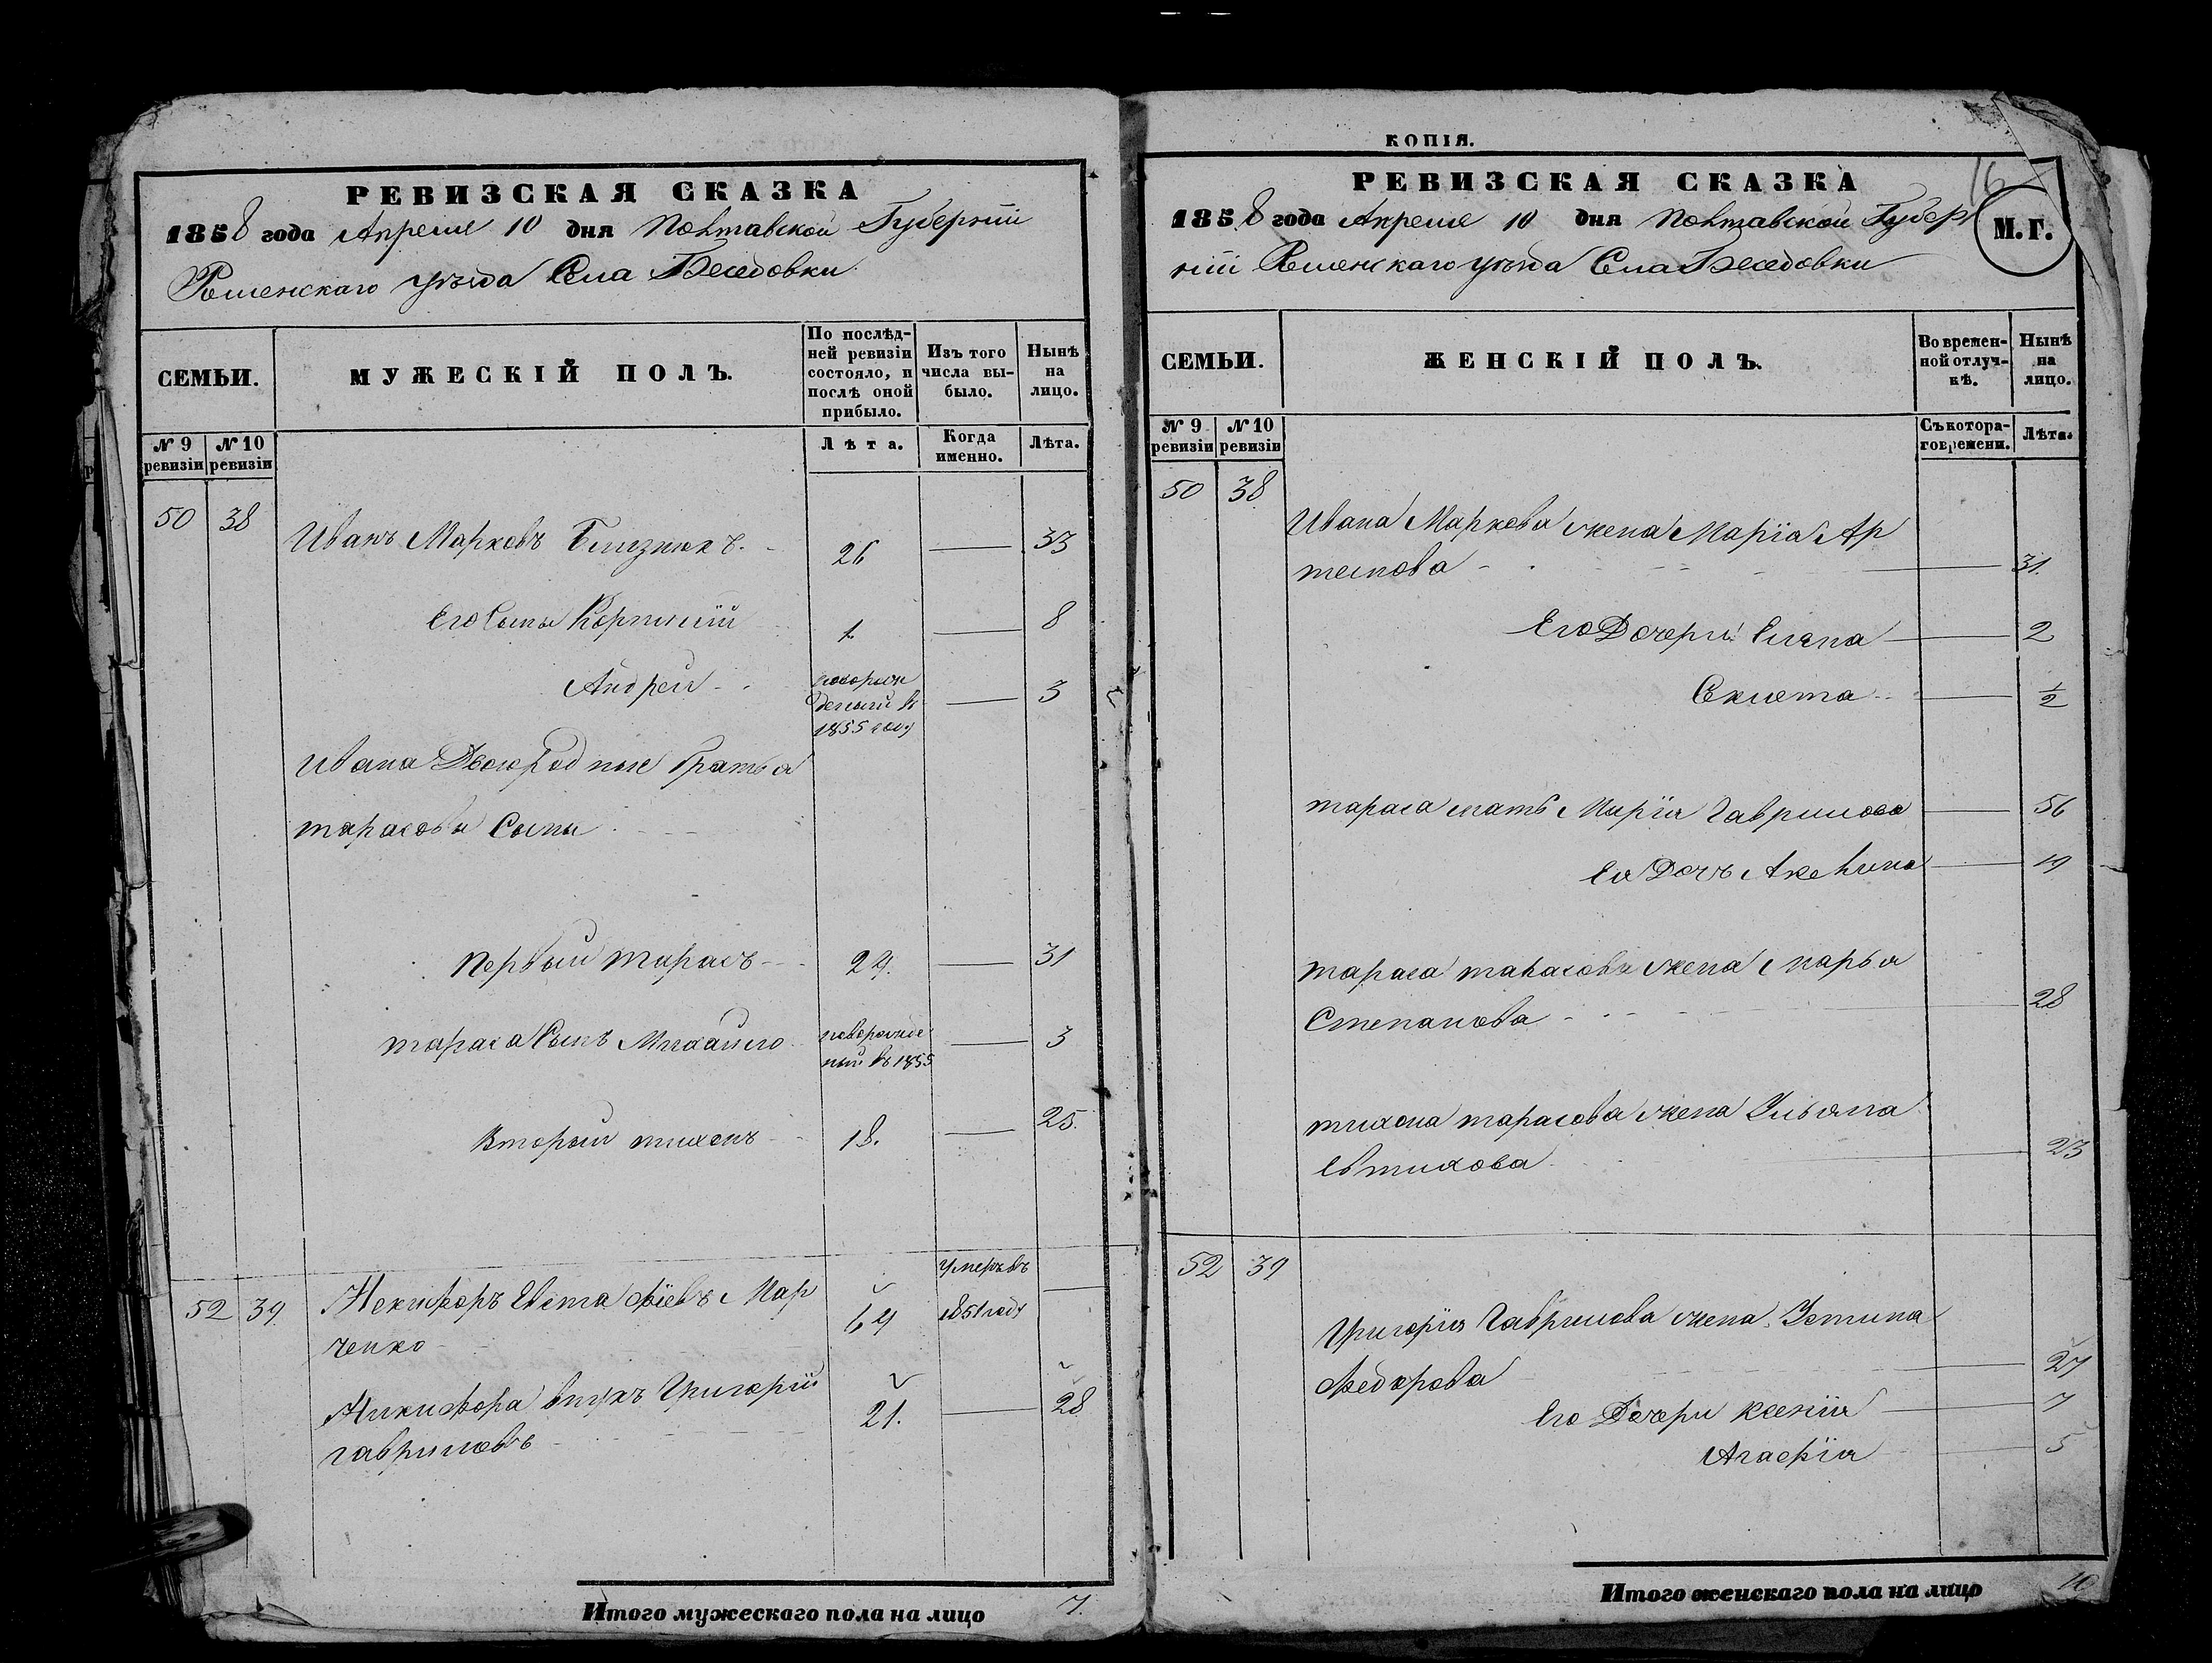 РЕВИЗСКАЯ СКАЗКА
1858 года Апреля 10 дня Полтавской Губернiи
Роменскаго уѣзда Села Беседовки
СЕМЬИ.
МУЖЕСКIЙ ПОЛЪ.
По послѣд-
ней ревизiи
состояло, и
послѣ оной
прибыло.
Изъ того
числа вы-
было.
Нынѣ
на
лицо.
№ 9
ревизiи
№ 10
ревизiи
Лѣта.
Когда
именно.
Лѣта.
50 38
Иванъ Марковъ Близнюкъ. 26 — 33
Его Сыны Корнилiй 1. — 8
Андрей — 3
новорож
деный въ
1855 году
Ивана Двоюродные братья
тарасовы Сыны
первый тарасъ 24. — 31
тараса Сынъ Михайло — 3
новорожде
ный въ 1855
Вторый тихонъ 18. — 25.
52 39
Некифоръ Евстафiевъ Мар 64 —
ченко
умеръ въ
1851 году
Никифора внукъ Григорiй 21. — 28
гавриловъ
Итого мужескаго пола на лицо 7.
КОПIЯ.
16
РЕВИЗСКАЯ СКАЗКА
М.Г.
1858 года Апреля 10 дня Полтавской Губер
нiи Роменскаго уѣзда Села Беседовки
СЕМЬИ.
ЖЕНСКIЙ ПОЛЪ.
Во времен-
ной отлуч-
кѣ.
Нынѣ
на
лицо.
№ 9
ревизiи
№ 10
ревизiи
Съ котора-
го времени.
Лѣта.
50 38
Ивана Маркова жена Марiа Ар
темова — 31.
Его Дочери: Елена — 2
Секлета — 1/2
тараса мать Марiя Гаврилова — 56
Ея Дочъ Акелина — 19
тараса тарасова жена марья
Степанова — 28
тихона тарасова жена Ульяна
Евтихова — 23
52 39
Григорiя Гаврилова жена Устина
Федорова — 27
Его Дочери Ксенiя — 7
Агафiя — 5
Итого женскаго пола на лицо 10